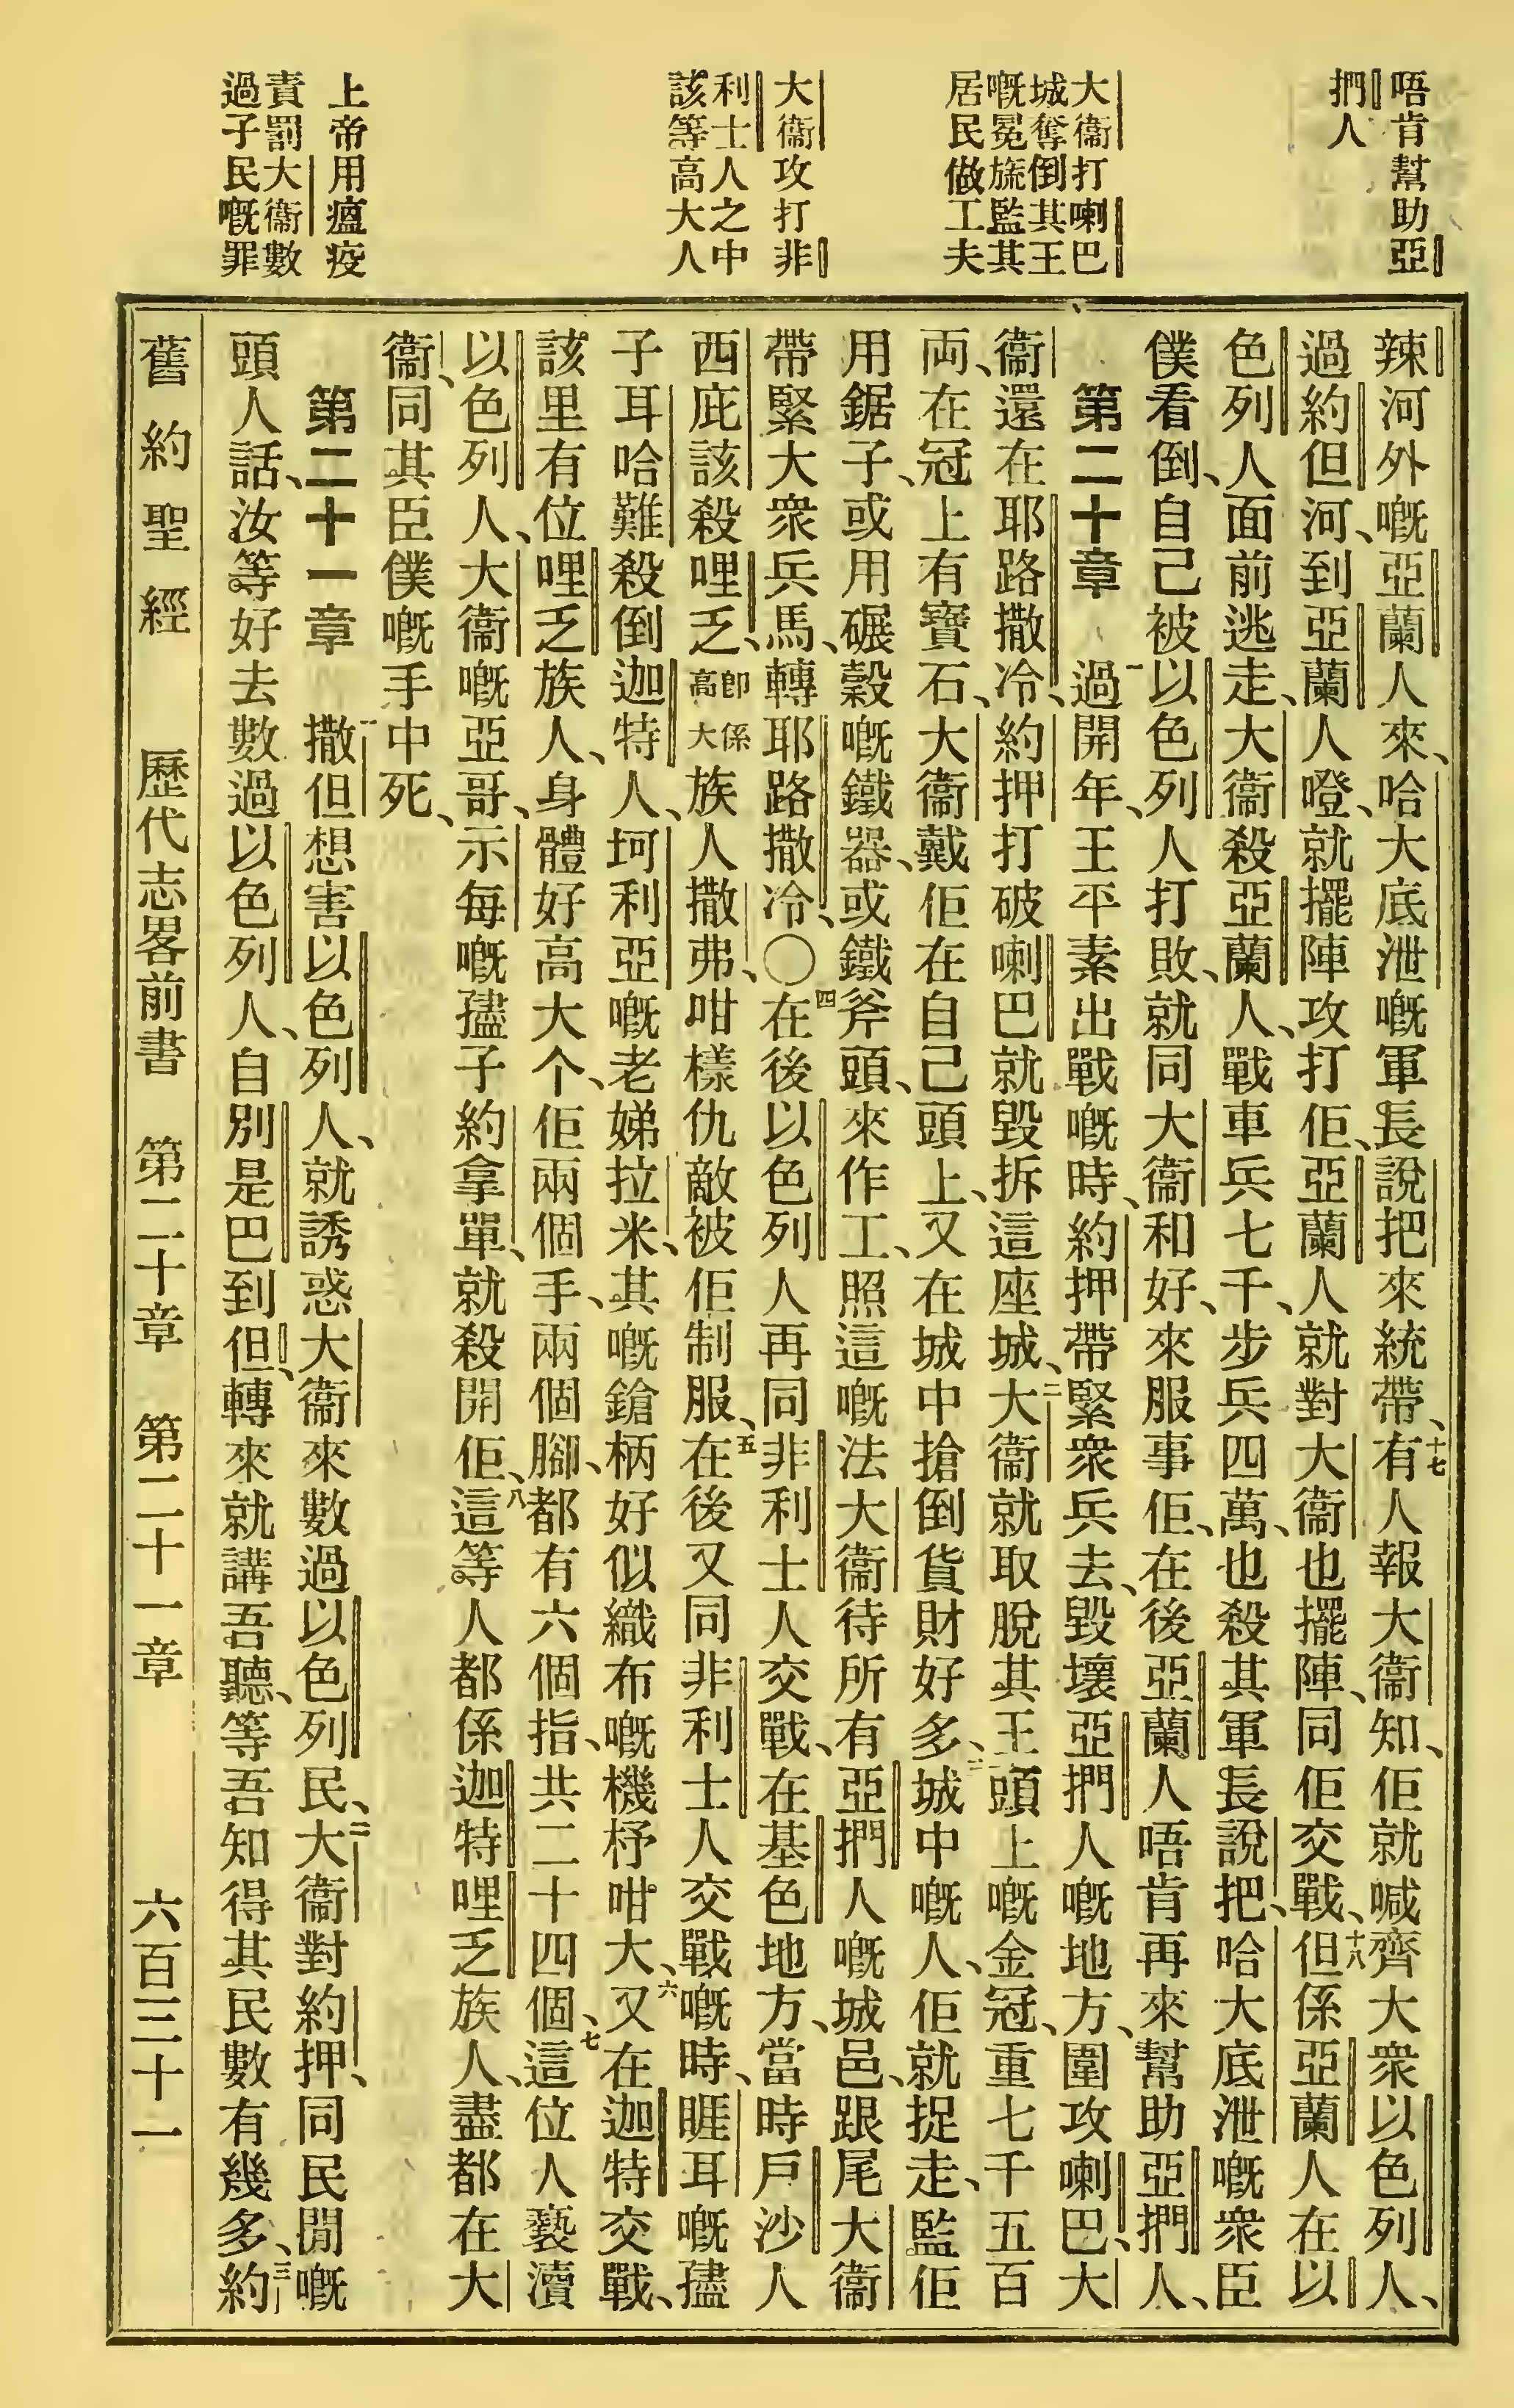 唔肯幫助亞
捫人
大衞打喇巴
城奪倒其王
嘅冕旒監其
居民做工夫
大衞攻打非
利士人之中
該等高大人
上帝用瘟疫
責罰大衞數
過子民嘅罪
辣河外嘅亞蘭人來、哈大底泄嘅軍長說把來統帶、十七有人報大衞知、佢就喊齊大衆以色列人、
過約但河、到亞蘭人嶝、就擺陣攻打佢、亞蘭人就對大衞也擺陣、同佢交戰、十八但係亞蘭人在以
色列人面前逃走、大衞殺亞蘭人、戰車兵七千、步兵四萬、也殺其軍長說把、哈大底泄嘅衆臣
僕看倒、自己被以色列人打敗、就同大衞和好、來服事佢、在後亞蘭人唔肯再來幫助亞捫人、
第二十章 一過開年、王平素出戰嘅時、約押帶緊衆兵去、毀壞亞捫人嘅地方、圍攻喇巴、大
衞、還在耶路撒冷、約押打破喇巴就毀拆這座城、二大衞就取脫其王頭上嘅金冠、重七千五百
両、在冠上有寶石、大衞戴佢在自己頭上、又在城中搶倒貨財好多、三城中嘅人、佢就捉走、監佢
用鋸子、或用碾穀嘅鐵器、或鐵斧頭、來作工、照這嘅法大衞待所有亞捫人嘅城邑、跟尾大衞
帶緊大衆兵馬、轉耶路撒冷、〇四在後以色列人再同非利士人交戰、在基色地方、當時戶沙人
西庇該殺哩乏、卽係高大族人撒弗、咁樣仇敵被佢制服、五在後又同非利士人交戰嘅時、睚耳嘅孻
子耳哈難殺倒迦特人、坷利亞嘅老娣拉米、其嘅鎗柄好似織布嘅機杼咁大、六又在迦特交戰、
該里有位哩乏族人、身體好高大个、佢兩個手、兩個腳、都有六個指、共二十四個、七這位人褻瀆
以色列人、大衞嘅亞哥、示每嘅孻子約拿單、就殺開佢、八這等人都係迦特哩乏族人、盡都在大
衞、同其臣僕嘅手中死、
第二十一章 一撒但想害以色列人、就誘惑大衞來數過以色列民、二大衞對約押、同民閒嘅
頭人話、汝等好去數過以色列人、自別是巴到但、轉來就講吾聽、等吾知得其民數有幾多、三約
舊約聖經 歷代志畧前書 第二十章 第二十一章 六百三十一